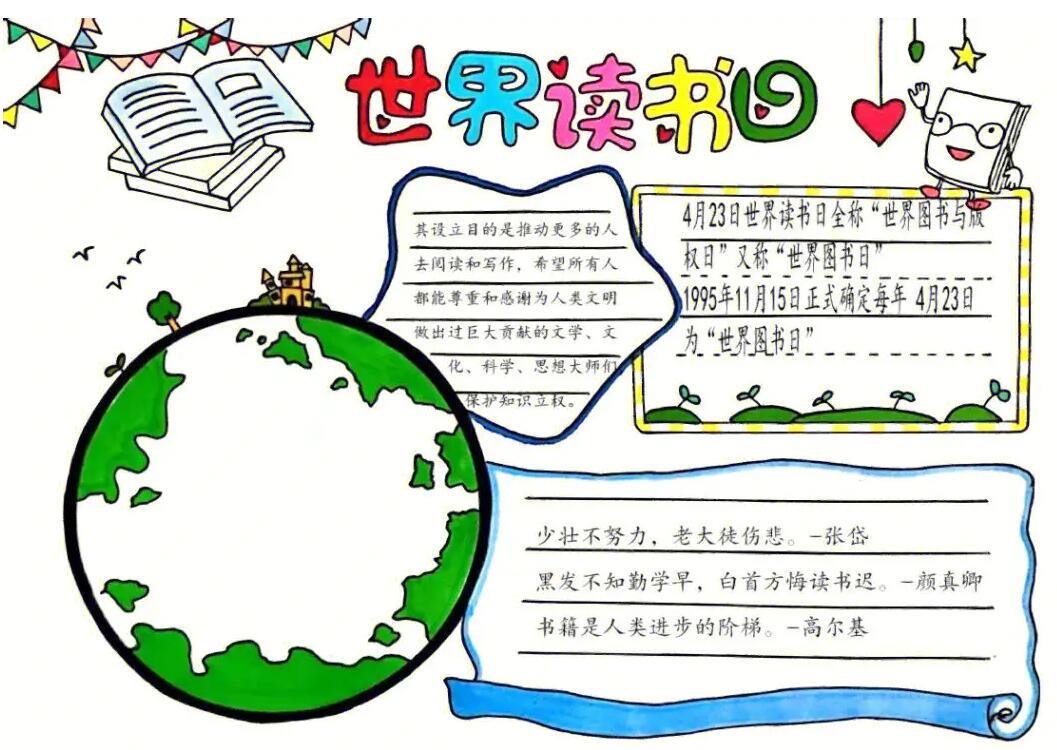 世界读书日
其设立目的是推动更多的人
去阅读和写作，希望所有人
都能尊重和感谢为人类文明
做出过巨大贡献的文学、文
化、科学、思想大师们
保护知识立权。
4月23日世界读书日全称“世界图书与版
权日”又称“世界图书日”
1995年11月15日正式确定每年 4月23日
为“世界图书日”
少壮不努力，老大徒伤悲。-张岱
黑发不知勤学早，白首方悔读书迟。-颜真卿
书籍是人类进步的阶梯。-高尔基